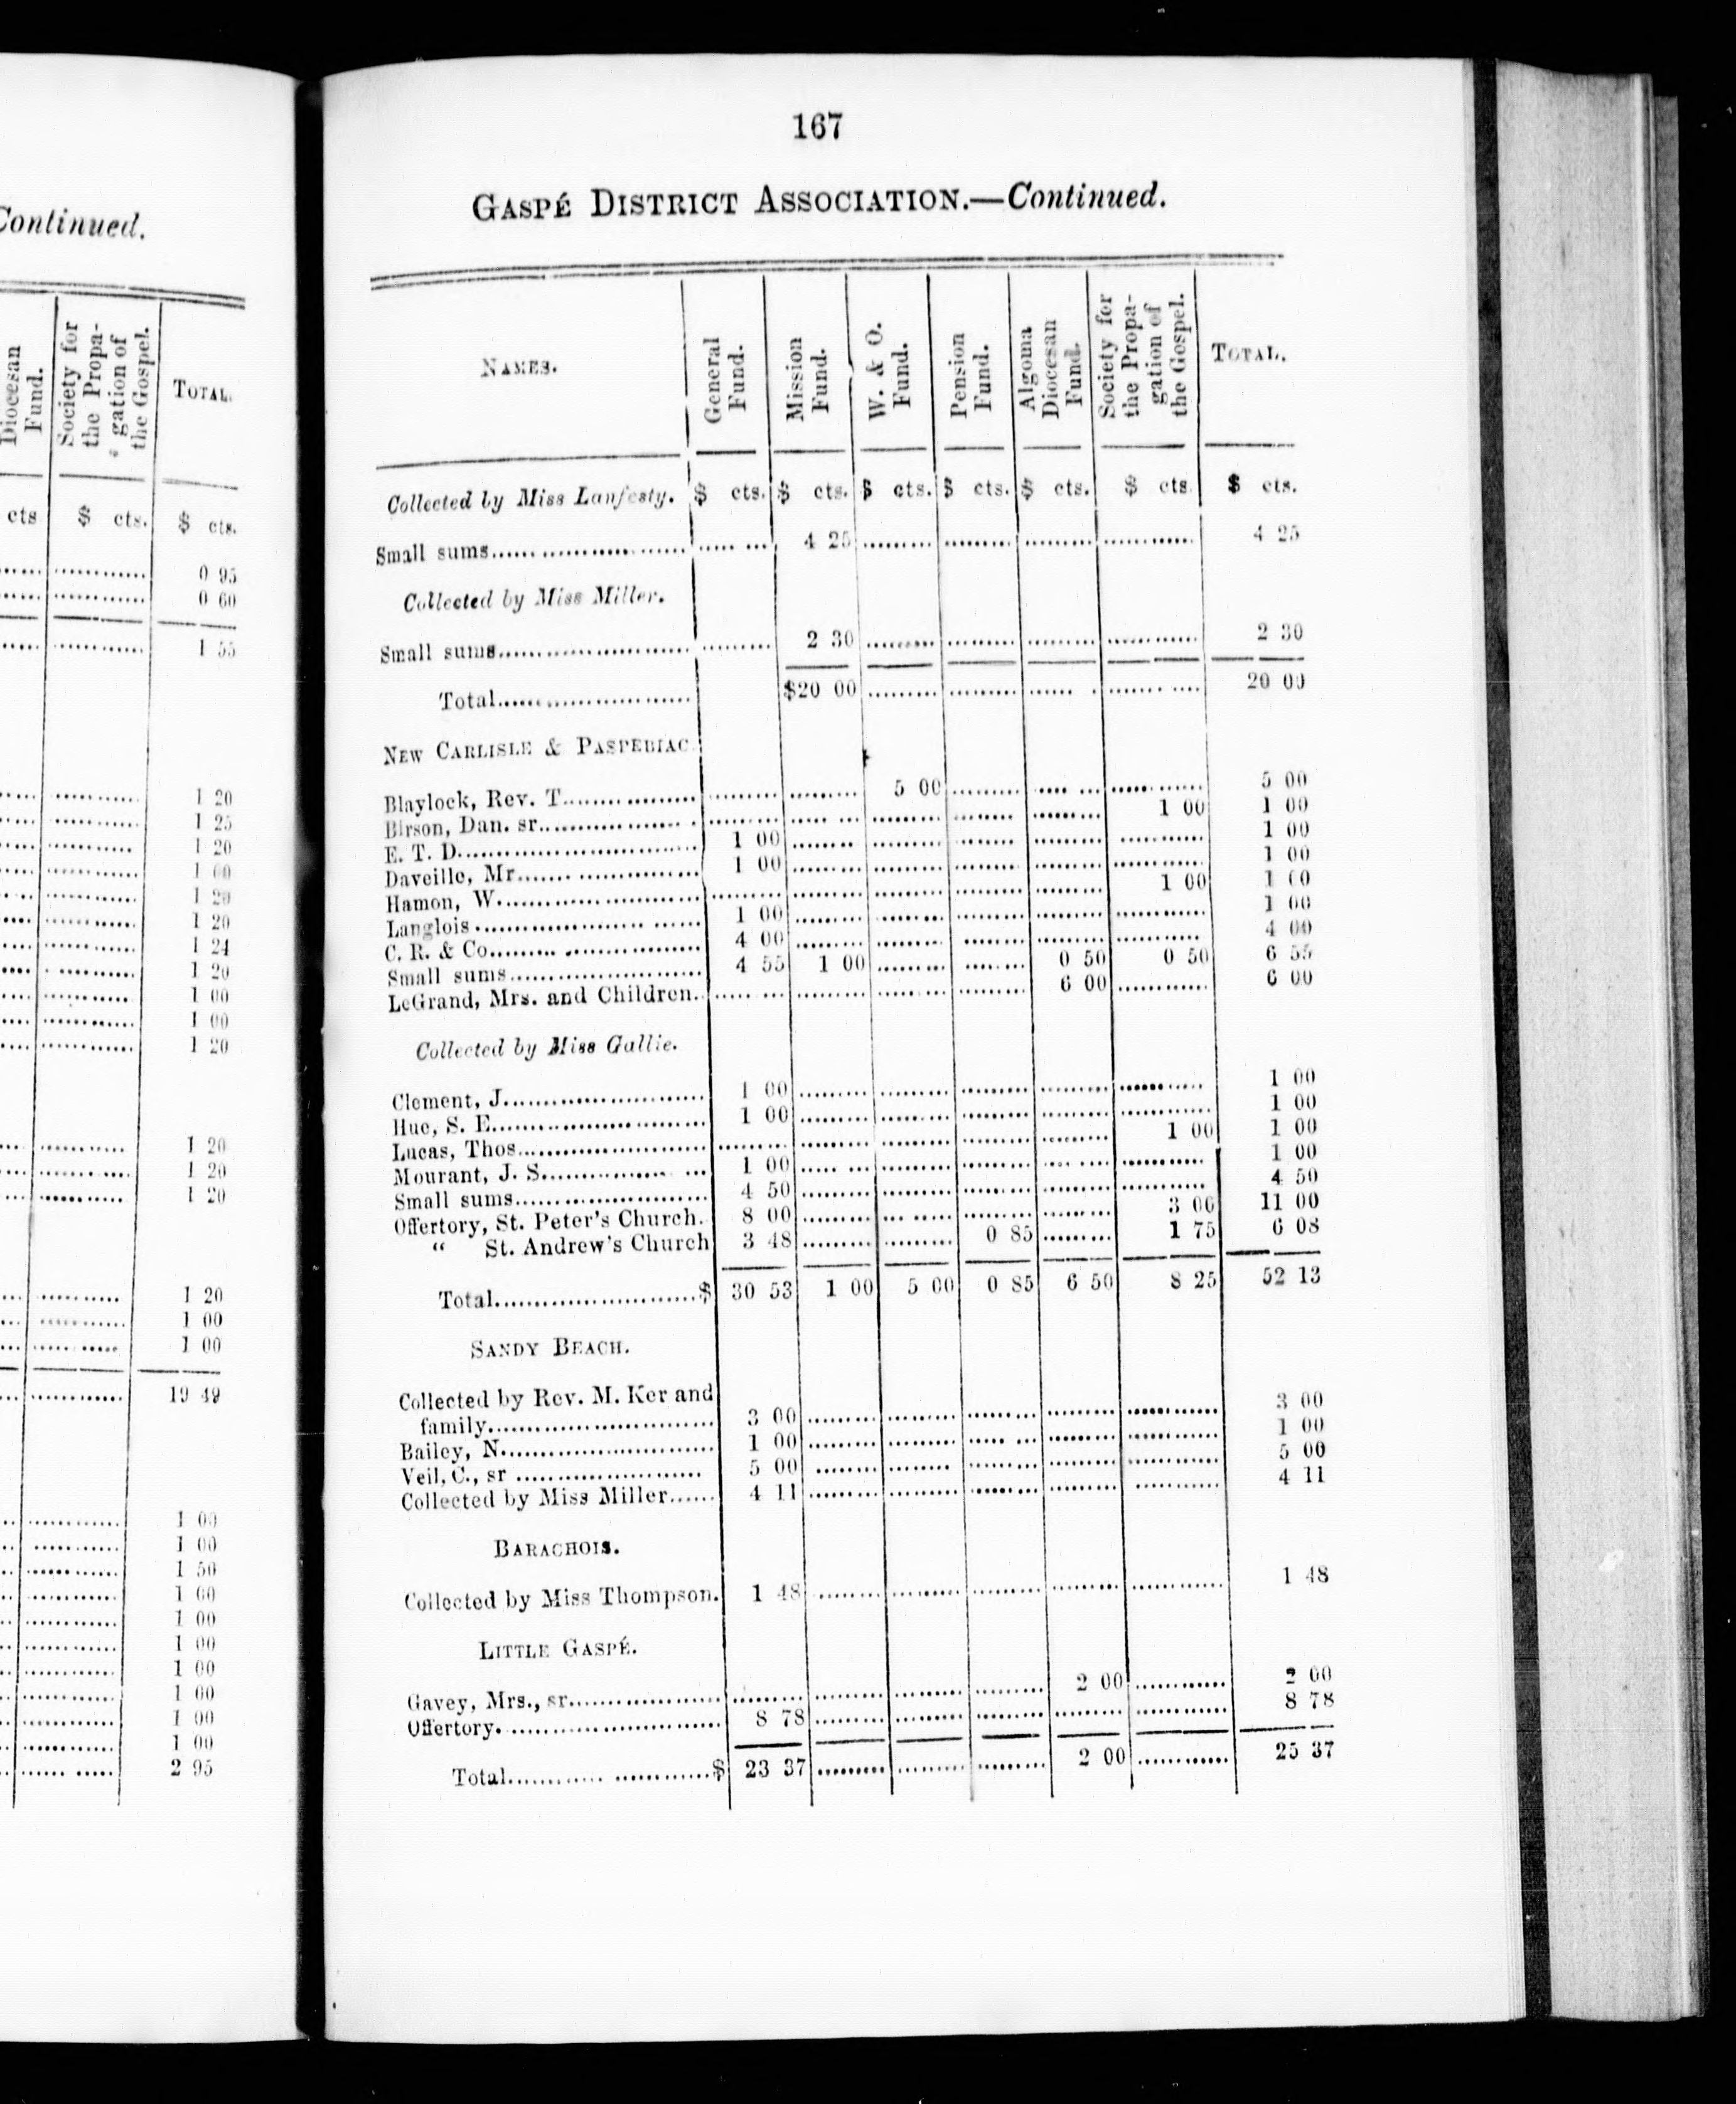 Continued.
Diocesan Fund.
Society for the Propagation of the Gospel.
TOTAL.
cts $ cts. $ cts.
0 95
0 60
1 55
1 20
1 25
1 20
1 00
1 20
1 20
1 24
1 20
1 00
1 00
1 20
1 20
1 20
1 20
1 20
1 00
1 00
19 49
1 00
1 00
1 50
1 00
1 00
1 00
1 00
1 00
1 00
1 00
2 95
167
GASPÉ DISTRICT ASSOCIATION.—Continued.
NAMES.
General Fund.
Mission Fund.
W. & O. Fund.
Pension Fund.
Algoma Diocesan Fund.
Society for the Propa-gation of the Gospel.
TOTAL.
Collected by Miss Lanfesty. $ cts. $ cts. $ cts. $ cts. $ cts. $ cts $ cts.
Small sums 4 25 4 25
Collected by Miss Miller.
Small sums 2 30 2 30
Total $20 00 20 00
NEW CARLISLE & PASPEBIAC
Blaylock, Rev. T. 5 00 5 00
Birson, Dan. sr. 1 00 1 00
E. T. D. 1 00 1 00
Daveille, Mr. 1 00 1 00
Hamon, W. 1 00 1 00
Langlois 1 00 1 00
C. R. & Co. 4 00 4 00
Small sums 4 55 1 00 0 50 0 50 6 55
LeGrand, Mrs. and Children. 6 00 6 00
Collected by Miss Gallie.
Clement, J. 1 00 1 00
Hue, S. E. 1 00 1 00
Lucas, Thos. 1 00 1 00
Mourant, J. S. 1 00 1 00
Small sums 4 50 4 50
Offertory, St. Peter's Church. 8 00 3 00 11 00
“ St. Andrew's Church 3 48 0 85 1 75 6 08
Total $ 30 53 1 00 5 00 0 85 6 50 8 25 52 13
SANDY BEACH.
Collected by Rev. M. Ker and
family 3 00 3 00
Bailey, N. 1 00 1 00
Veil, C., sr 5 00 5 00
Collected by Miss Miller 4 11 4 11
BARACHOIS.
Collected by Miss Thompson. 1 48 1 48
LITTLE GASPÉ.
Gavey, Mrs., sr. 2 00 2 00
Offertory. 8 78 8 78
Total $ 23 37 2 00 25 37